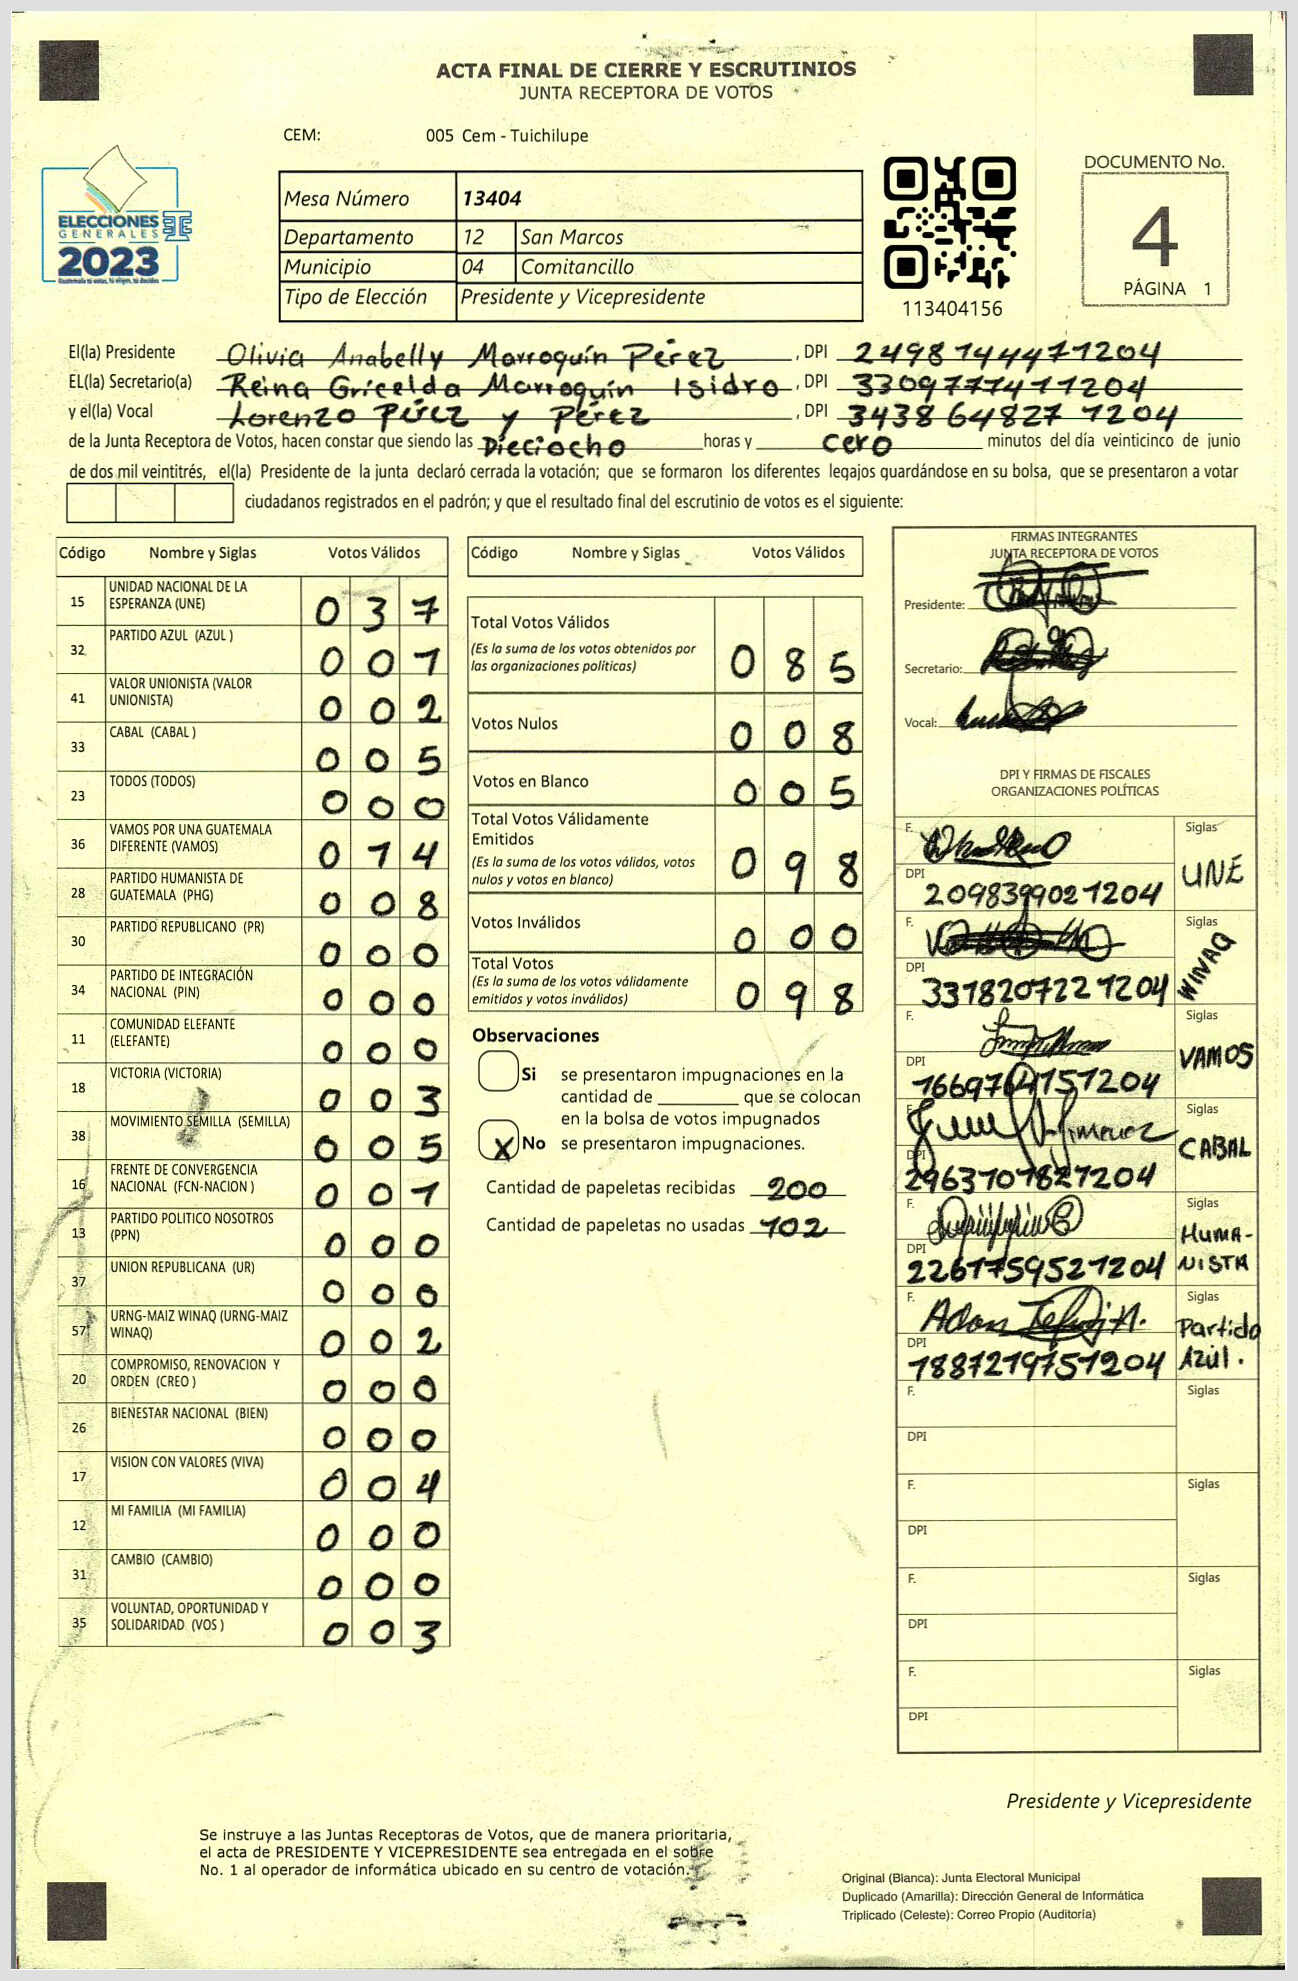 ACTA FINAL DE CIERRE Y ESCRUTINIOS
JUNTA RECEPTORA DE VOTOS
CEM: 005 Cem - Tuichilupe
ELECCIONES
GENERALES
2023
Mesa Número 13404
Departamento 12 San Marcos
Municipio 04 Comitancillo
Tipo de Elección Presidente y Vicepresidente
113404156
DOCUMENTO No.
4
PÁGINA 1
El(la) Presidente Olivia Anabelly Marroquín Pérez, DPI 2498144471204
EL(la) Secretario(a) Reina Gricelda Marroquín Isidro, DPI 3309777411204
y el(la) Vocal Lorenzo Pérez y Pérez, DPI 3438648271204
de la Junta Receptora de Votos, hacen constar que siendo las Dieciocho horas y cero minutos del día veinticinco de junio
de dos mil veintitrés, el(la) Presidente de la junta declaró cerrada la votación; que se formaron los diferentes legajos guardándose en su bolsa, que se presentaron a votar
ciudadanos registrados en el padrón; y que el resultado final del escrutinio de votos es el siguiente:
Código Nombre y Siglas Votos Válidos
15 UNIDAD NACIONAL DE LA
ESPERANZA (UNE) 037
32 PARTIDO AZUL (AZUL ) 001
41 VALOR UNIONISTA (VALOR
UNIONISTA) 002
33 CABAL (CABAL ) 005
23 TODOS (TODOS) 000
36 VAMOS POR UNA GUATEMALA
DIFERENTE (VAMOS) 014
28 PARTIDO HUMANISTA DE
GUATEMALA (PHG) 008
30 PARTIDO REPUBLICANO (PR) 000
34 PARTIDO DE INTEGRACIÓN
NACIONAL (PIN) 000
11 COMUNIDAD ELEFANTE
(ELEFANTE) 000
18 VICTORIA (VICTORIA) 003
38 MOVIMIENTO SEMILLA (SEMILLA) 005
16 FRENTE DE CONVERGENCIA
NACIONAL (FCN-NACION ) 001
13 PARTIDO POLITICO NOSOTROS
(PPN) 000
37 UNION REPUBLICANA (UR) 000
57 URNG-MAIZ WINAQ (URNG-MAIZ
WINAQ) 002
20 COMPROMISO, RENOVACION Y
ORDEN (CREO ) 000
26 BIENESTAR NACIONAL (BIEN) 000
17 VISION CON VALORES (VIVA) 004
12 MI FAMILIA (MI FAMILIA) 000
31 CAMBIO (CAMBIO) 000
35 VOLUNTAD, OPORTUNIDAD Y
SOLIDARIDAD (VOS ) 003
Código Nombre y Siglas Votos Válidos
Total Votos Válidos
(Es la suma de los votos obtenidos por
las organizaciones politicas) 085
Votos Nulos 008
Votos en Blanco 005
Total Votos Válidamente
Emitidos
(Es la suma de los votos válidos, votos
nulos y votos en blanco) 098
Votos Inválidos 000
Total Votos
(Es la suma de los votos válidamente
emitidos y votos inválidos) 098
Observaciones
Si se presentaron impugnaciones en la
cantidad de ________ que se colocan
en la bolsa de votos impugnados
X No se presentaron impugnaciones.
Cantidad de papeletas recibidas 200
Cantidad de papeletas no usadas 102
FIRMAS INTEGRANTES
JUNTA RECEPTORA DE VOTOS
Presidente:
Secretario:
Vocal:
DPI Y FIRMAS DE FISCALES
ORGANIZACIONES POLÍTICAS
F. Siglas
UNE
DPI 2098399021204
F. Siglas
WINAQ
DPI 3318207221204
F. Siglas
VAMOS
DPI 1669764151204
F. Siglas
CABAL
DPI 2963701821204
F. Siglas
HUMA-
NISTA
DPI 2261759521204
F. Siglas
Partido
Azul.
DPI 1887219751204
F. Siglas
DPI
F. Siglas
DPI
F. Siglas
DPI
F. Siglas
DPI
Presidente y Vicepresidente
Se instruye a las Juntas Receptoras de Votos, que de manera prioritaria,
el acta de PRESIDENTE Y VICEPRESIDENTE sea entregada en el sobre
No. 1 al operador de informática ubicado en su centro de votación.
Original (Blanca): Junta Electoral Municipal
Duplicado (Amarilla): Dirección General de Informática
Triplicado (Celeste): Correo Propio (Auditoría)